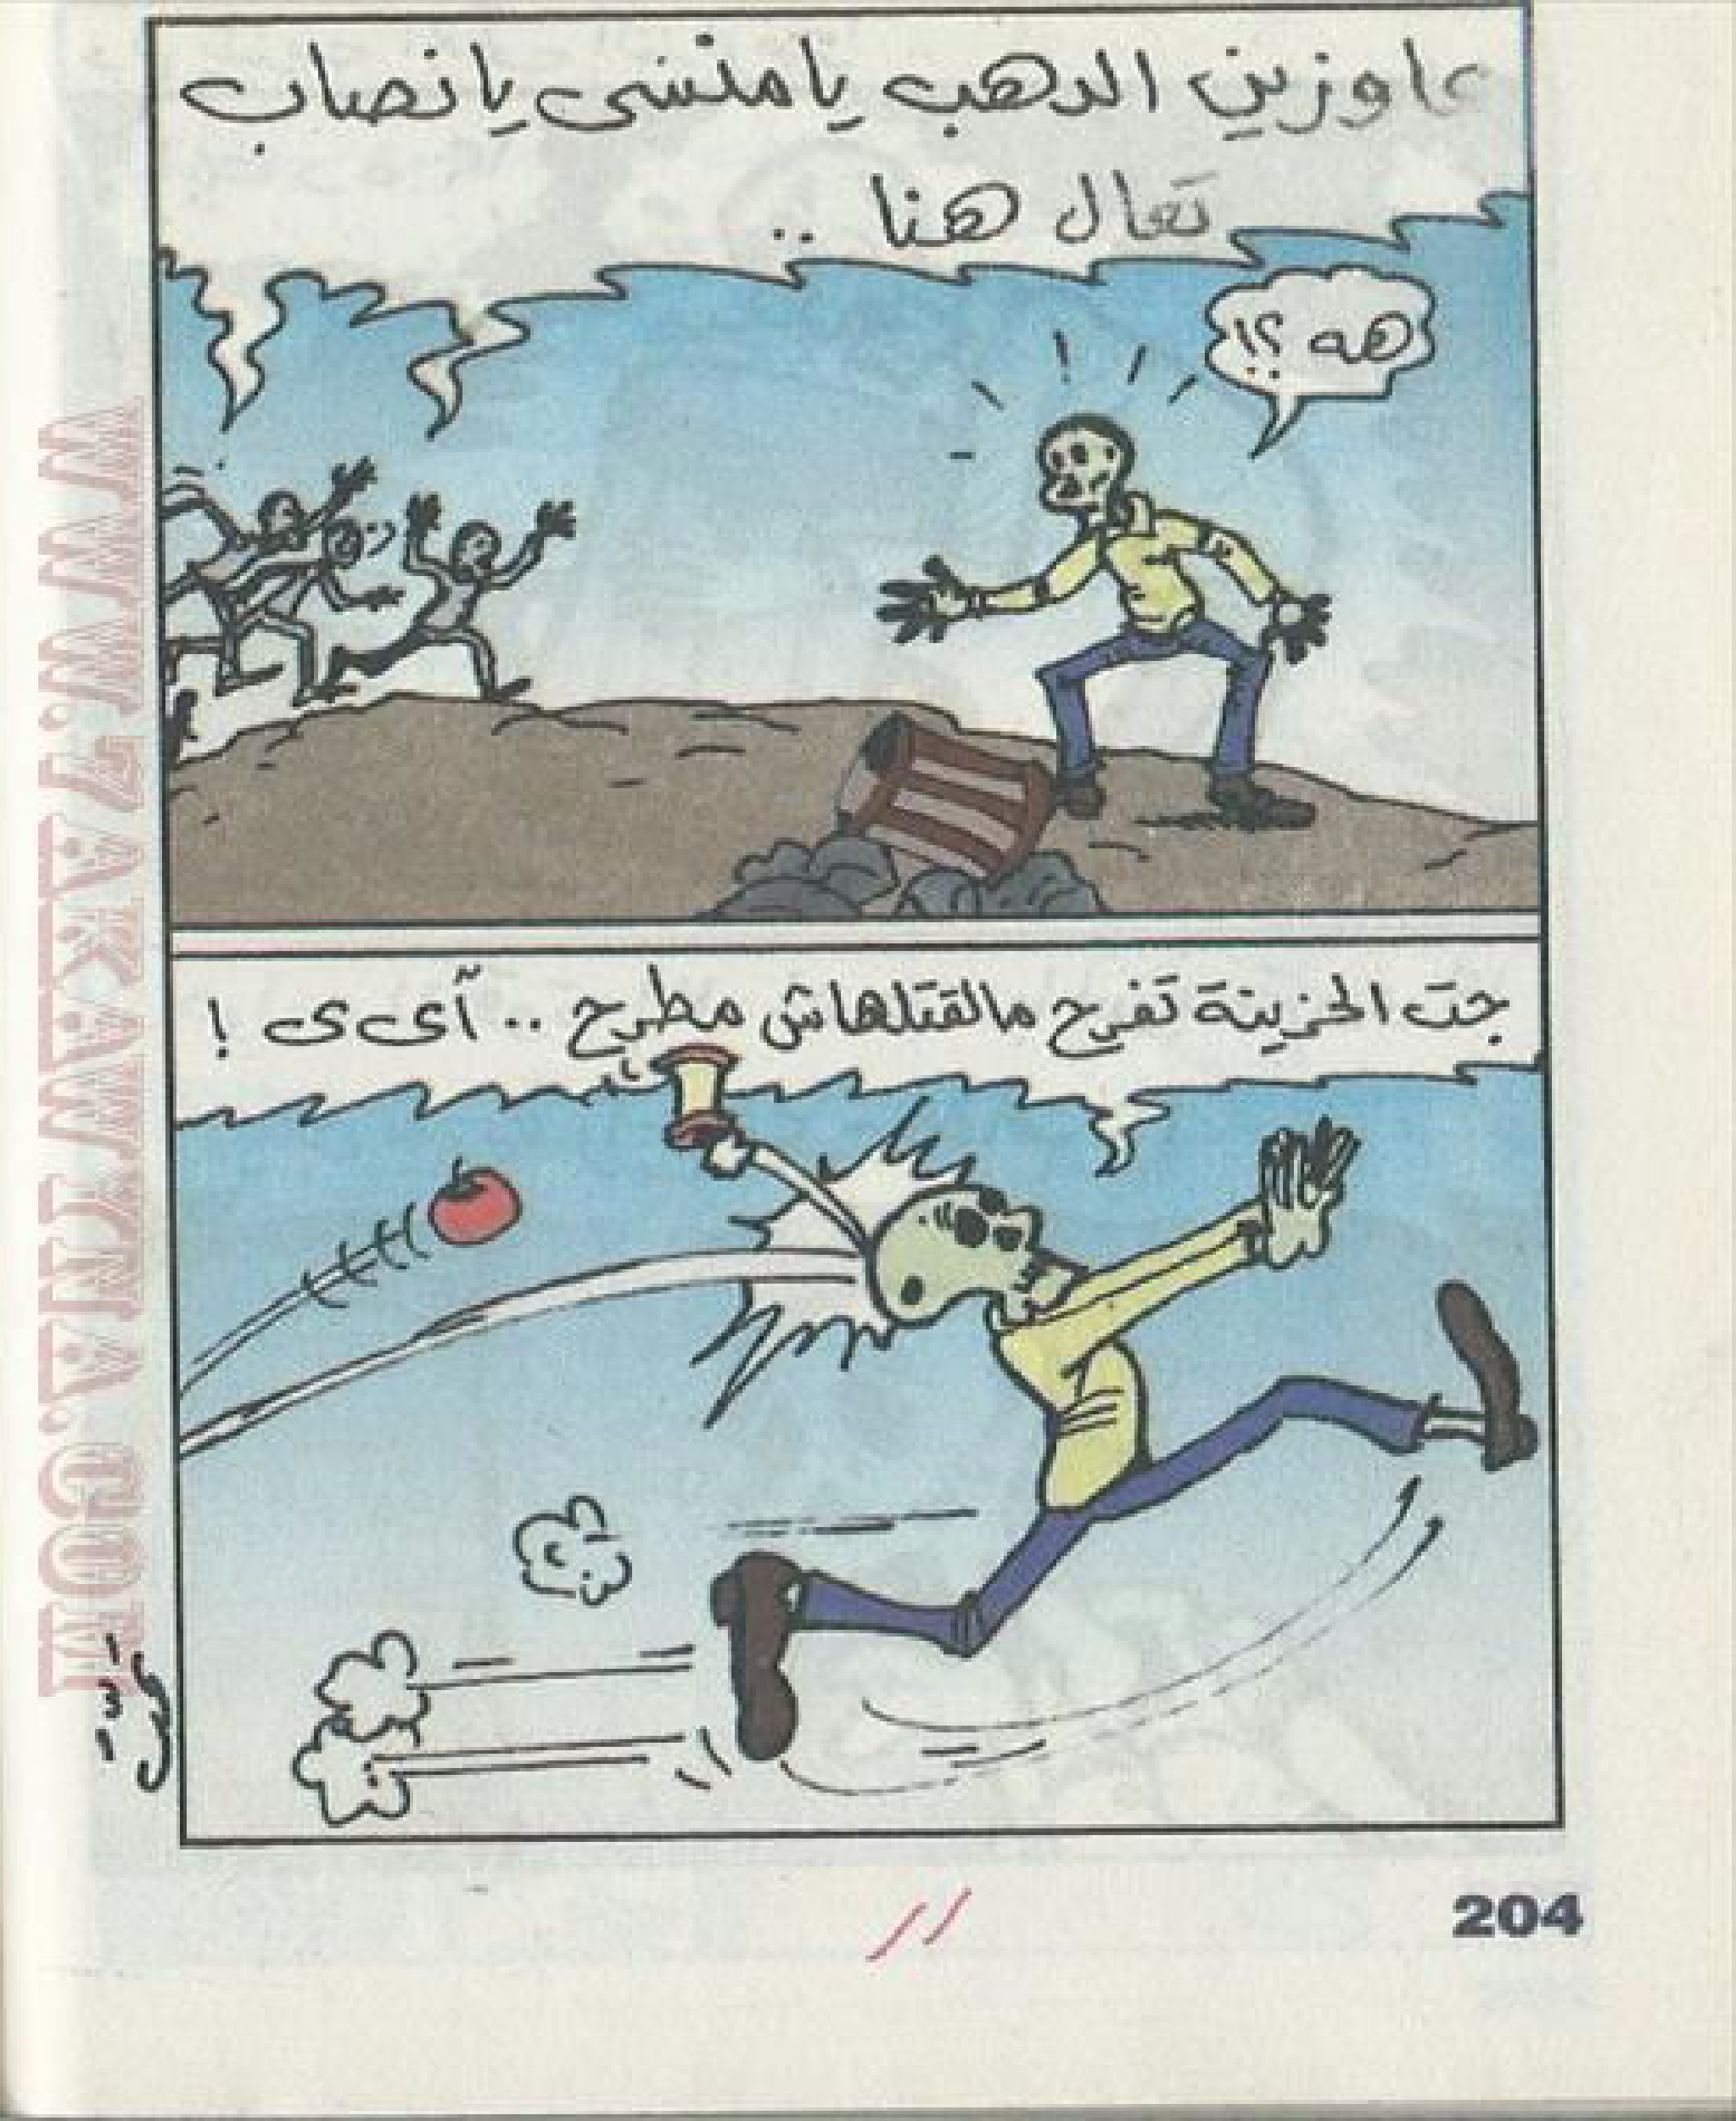 عاوزين الدهب يا منسى يا نصاب
تعال هنا ..
هه ؟!
جت الحزينة تفرح مالقتلهاش مطرح .. آى ى !
WWW.7AKAWINA.COM
204